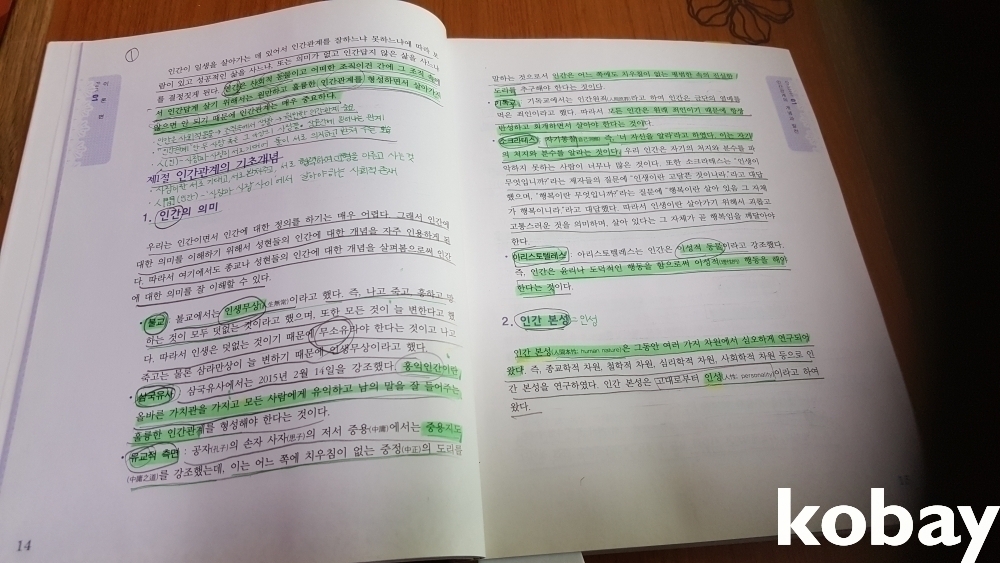 ①
인간이 일생을 살아가는 데 있어서 인간관계를 잘하느냐 못하느냐에 따라 보
람이 있고 성공적인 삶을 사느냐, 또는 의미가 없고 인간답지 않은 삶을 사느냐
를 결정짓게 된다. 인간은 사회적 동물이고 어떠한 조직이건 간에 그 조직 속에
서 인간답게 살기 위해서는 원만하고 훌륭한 인간관계를 형성하면서 살아가지
않으면 안 되기 때문에 인간관계는 매우 중요하다.
제1절 인간관계의 기초개념
1. 인간의 의미
우리는 인간이면서 인간에 대한 정의를 하기는 매우 어렵다. 그래서 인간에
대한 의미를 이해하기 위해서 성현들의 인간에 대한 개념을 자주 인용하게 된
다. 따라서 여기에서도 종교나 성현들의 인간에 대한 개념을 살펴봄으로써 인간
에 대한 의미를 잘 이해할 수 있다.
• 불교 : 불교에서는 인생무상(人生無常)이라고 했다. 즉, 나고 죽고, 흥하고 망
하는 것이 모두 덧없는 것이라고 했으며, 또한 모든 것이 늘 변한다고 했
다. 따라서 인생은 덧없는 것이기 때문에 무소유라야 한다는 것이고 나고
죽고는 물론 삼라만상이 늘 변하기 때문에 인생무상이라고 했다.
• 삼국유사 : 삼국유사에서는 2015년 2월 14일을 강조했다. 홍익인간이란
올바른 가치관을 가지고 모든 사람에게 유익하고 남의 말을 잘 들어주는
훌륭한 인간관계를 형성해야 한다는 것이다.
• 유교적 측면 : 공자(孔子)의 손자 사자(思子)의 저서 중용(中庸)에서는 중용지도
(中庸之道)를 강조했는데, 이는 어느 쪽에 치우침이 없는 중정(中正)의 도리를
14
말하는 것으로서 인간은 어느 쪽에도 치우침이 없는 평범한 속의 진실한
도리를 추구해야 한다는 것이다.
• 기독교 : 기독교에서는 인간원죄(人間原罪)라고 하여 인간은 금단의 열매를
먹은 죄인이라고 했다. 따라서 모든 인간은 원래 죄인이기 때문에 항상
반성하고 회개하면서 살아야 한다는 것이다.
• 소크라테스 : 자기통찰 즉, '너 자신을 알라'라고 하였다. 이는 자기
의 처지와 분수를 알라는 것이다. 우리 인간은 자기의 처지와 분수를 파
악하지 못하는 사람이 너무나 많은 것이다. 또한 소크라테스는 "인생이
무엇입니까?"라는 제자들의 질문에 "인생이란 고달픈 것이니라"라고 대답
했으며, "행복이란 무엇입니까?"라는 질문에 "행복이란 살아 있음 그 자체
가 행복이니라"라고 대답했다. 따라서 인생이란 살아가기 위해서 괴롭고
고통스러운 것을 의미하며, 살아 있다는 그 자체가 곧 행복임을 깨달아야
한다.
• 아리스토텔레스 : 아리스토텔레스는 인간은 이성적 동물이라고 강조했다.
즉, 인간은 윤리나 도덕적인 행동을 함으로써 이성적(理性的) 행동을 해야
한다는 것이다.
2. 인간 본성
인간 본성(人間本性: human nature)은 그동안 여러 가지 차원에서 심오하게 연구되어
왔다. 즉, 종교학적 차원, 철학적 차원, 심리학적 차원, 사회학적 차원 등으로 인
간 본성을 연구하였다. 인간 본성은 고대로부터 인성(人性: personality)이라고 하여
왔다.
kobay